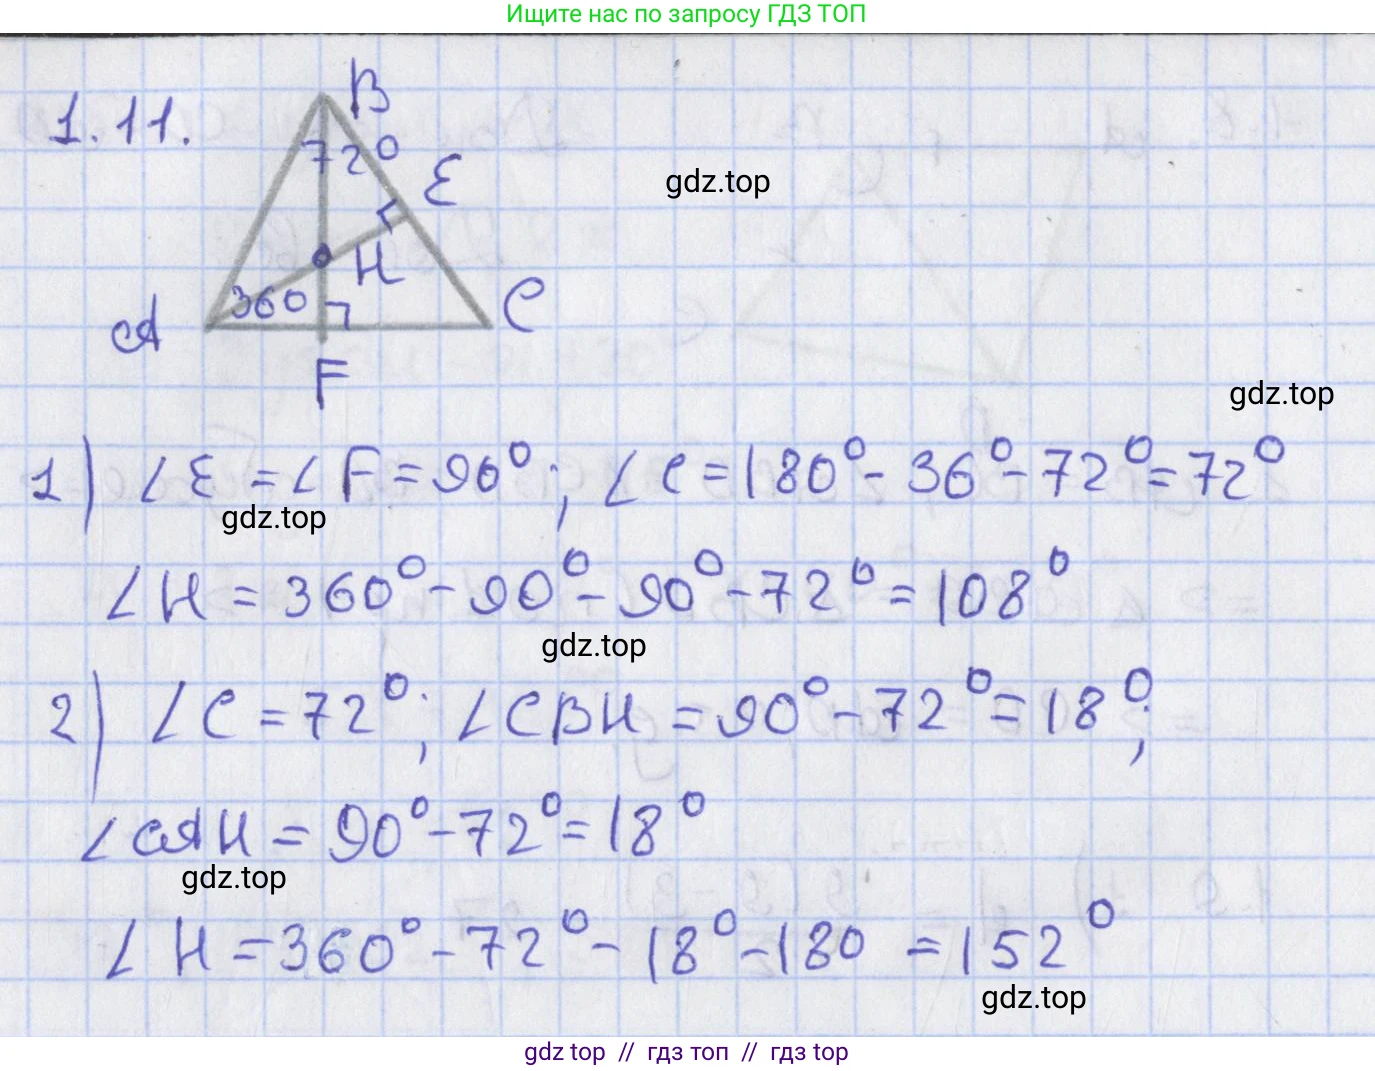 Ищите нас по запросу ГДЗ ТОП
1.11.
B
72°
E
gdz.top
H
36°
A
C
F
gdz.top
1) ∠E = ∠F = 90°; ∠C = 180° - 36° - 72° = 72°
gdz.top
∠H = 360° - 90° - 90° - 72° = 108°
gdz.top
2) ∠C = 72°; ∠CBH = 90° - 72° = 18°;
∠CAH = 90° - 72° = 18°
gdz.top
∠H = 360° - 72° - 18° - 180 = 152°
gdz.top
gdz top // гдз топ // гдз top